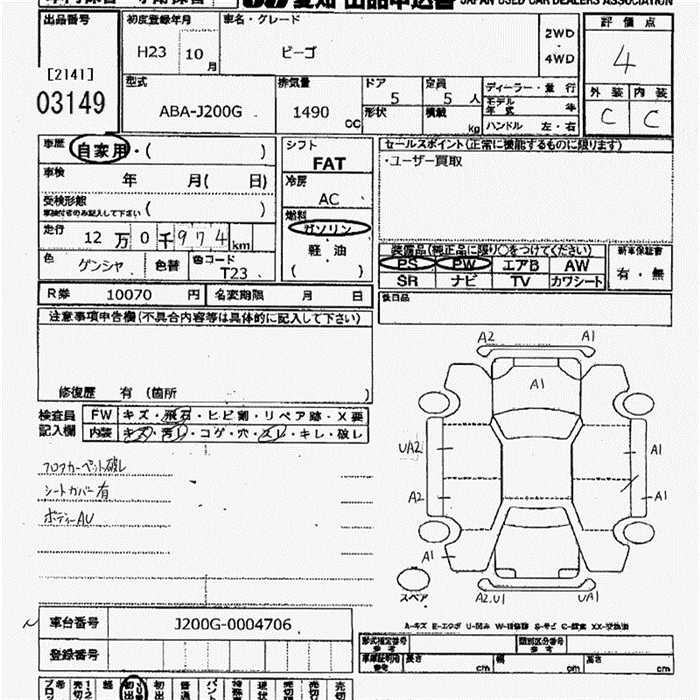 愛知 出品申込書 JAPAN USED CAR DEALERS ASSOCIATION
出品番号
[2141]
03149
初度登録年月
H23 10 月
車名・グレード
ビーゴ
2WD
4WD
評価点
4
外装 内装
C C
型式
ABA-J200G
排気量
1490 CC
ドア
5
形状
定員
5 人
積載
kg
ディーラー・並行
モデル年式 年
ハンドル 左・右
車歴 自家用・( )
車検 年 月( 日)
受検形態
車検付きのみ記入して下さい ( )
走行 12万0千974km
色 ゲンシヤ 色替 色コード T23
シフト
FAT
冷房
AC
燃料
ガソリン
軽・油
( )
セールスポイント(正常に機能するものに限ります)
・ユーザー買取
装備品(純正品に限り○をつけてください)
PS PW エアB AW
SR ナビ TV カワシート
新車保証書
有・無
R券 10070 円 名変期限 月 日
後日品
注意事項申告欄(不具合内容等は具体的に記入して下さい)
修復歴 有 (箇所 )
検査員記入欄
FW キズ・飛石・ヒビ割・リペア跡・X要
内装 キズ・汚レ・コゲ・穴・スレ・キレ・破レ
フロアカーペット破レ
シートカバー有
ボディーAU
A2 A1
A1
UA2 A1
A2 A1
A1
スペア
A2.U1 UA1
A-キズ E-エクボ U-凹み W-補修跡 S-サビ C-腐食 XX-交換済
車台番号 J200G-0004706
登録番号
型式指定番号 参考
類別区分番号 参考
車庫証明用 参考
長さ cm 幅 cm 高さ cm